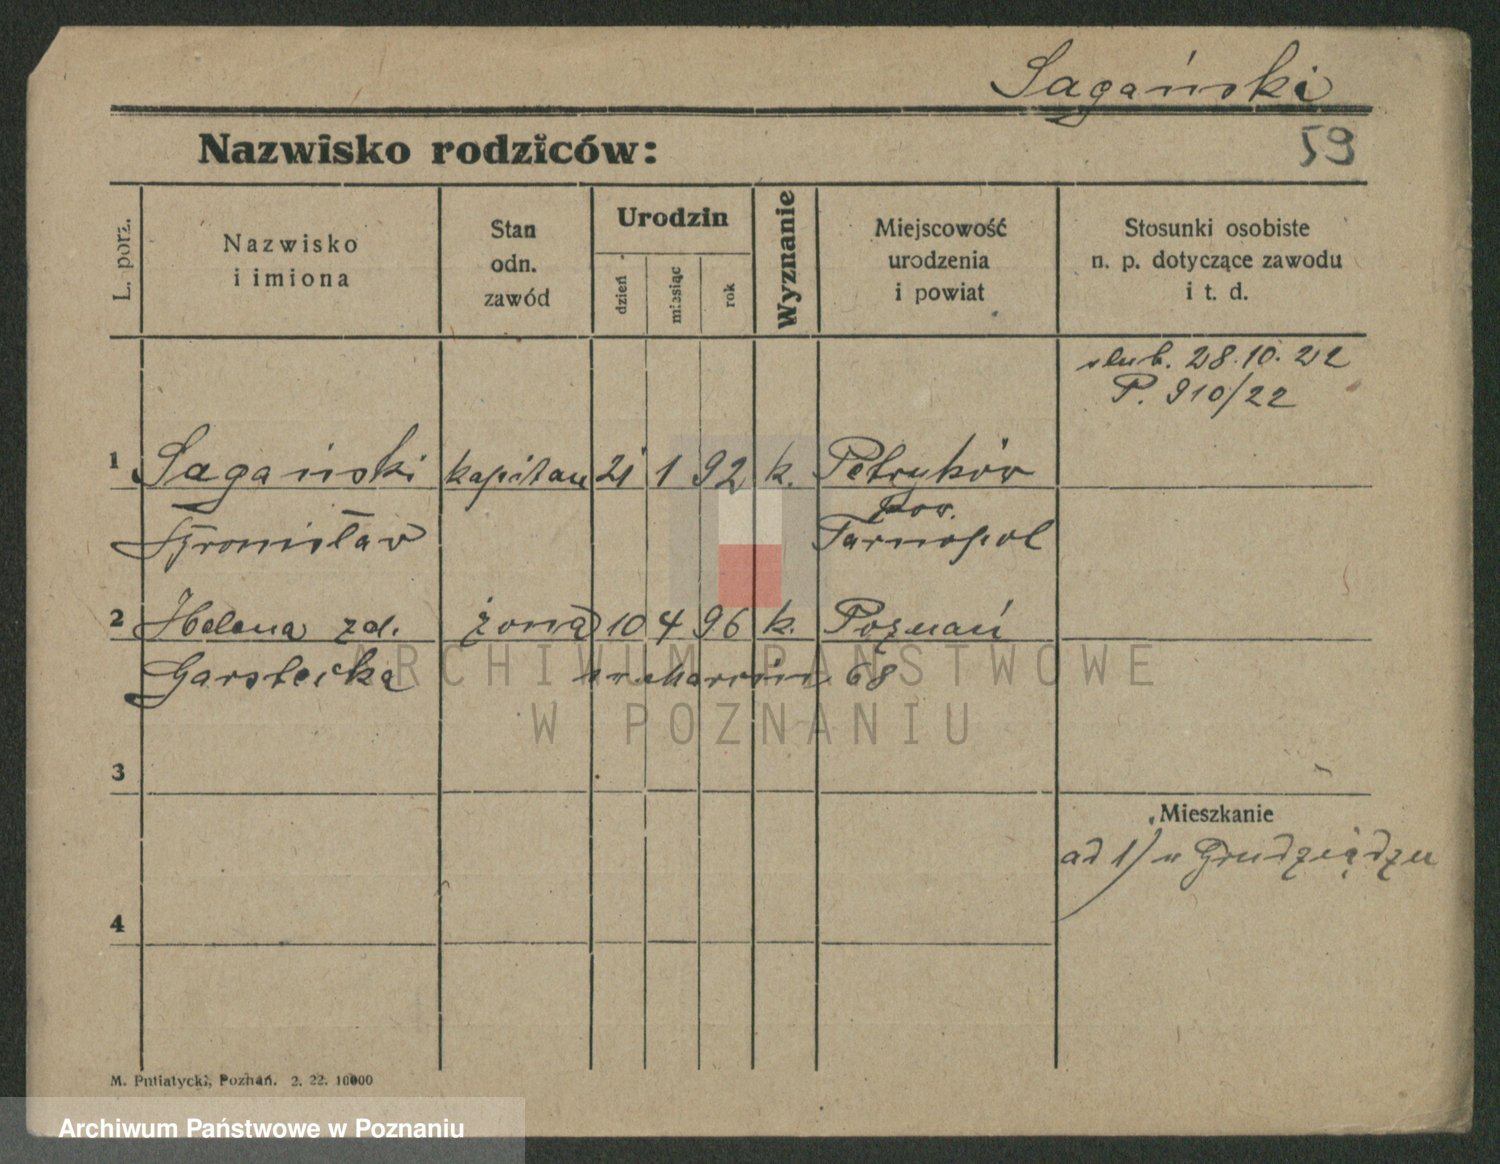 Sagański
59
Nazwisko rodziców:
L. porz.
Nazwisko
i imiona
Stan
odn.
zawód
Urodzin
dzień
miesiąc
rok
Wyznanie
Miejscowość
urodzenia
i powiat
Stosunki osobiste
n. p. dotyczące zawodu
i t. d.
ślub. 28.10.22
P. 910/22
1 Sagański kapitan 21 1 92 k. Petryków
pow.
Bronisław Tarnopol
2 Helena zd. żona 10 4 96 k. Poznań
Garstecka św. Marcin 68
3
Mieszkanie
ad 1) w Grudziądzu
4
M. Putiatycki, Poznań. 2. 22. 10000
ARCHIWUM PAŃSTWOWE
W POZNANIU
Archiwum Państwowe w Poznaniu